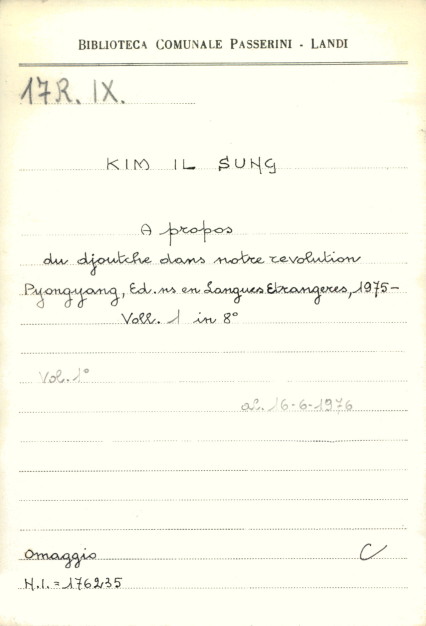 BIBLIOTECA COMUNALE PASSERINI - LANDI
17R. IX.
KIM IL SUNG
A propos
du djoutche dans notre revolution
Pyongyang, Ed.ns en Langues Etrangeres, 1975-
Voll. 1 in 8°
Vol. 1°
al. 16-6-1976
Omaggio C
N.I. = 176235